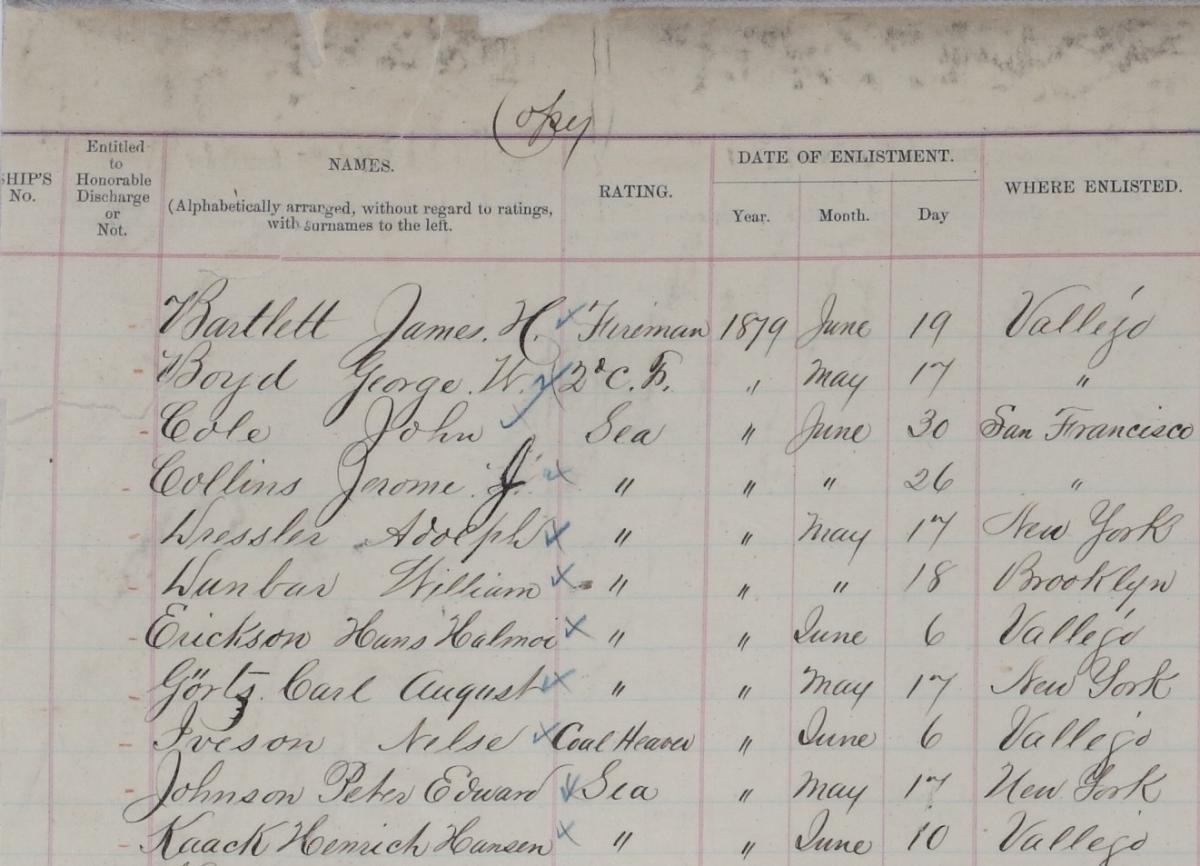 Copy
SHIP'S No.
Entitled to Honorable Discharge or Not.
NAMES.
(Alphabetically arranged, without regard to ratings, with surnames to the left.
RATING.
DATE OF ENLISTMENT.
Year. Month. Day
WHERE ENLISTED.
Bartlett James. H. Fireman 1879 June 19 Vallejo
Boyd George. W. 2d C. F. " May 17 "
Cole John Sea " June 30 San Francisco
Collins Jerome. J. " " " 26 "
Dressler Adolph " " May 17 New York
Dunbar William " " " 18 Brooklyn
Erickson Hans Halmoi " " June 6 Vallejo
Görtz. Carl August " " May 17 New York
Iveson Nelse Coal Heaver " June 6 Vallejo
Johnson Peter Edward Sea " May 17 New York
Kaack Henrich Hansen " " June 10 Vallejo